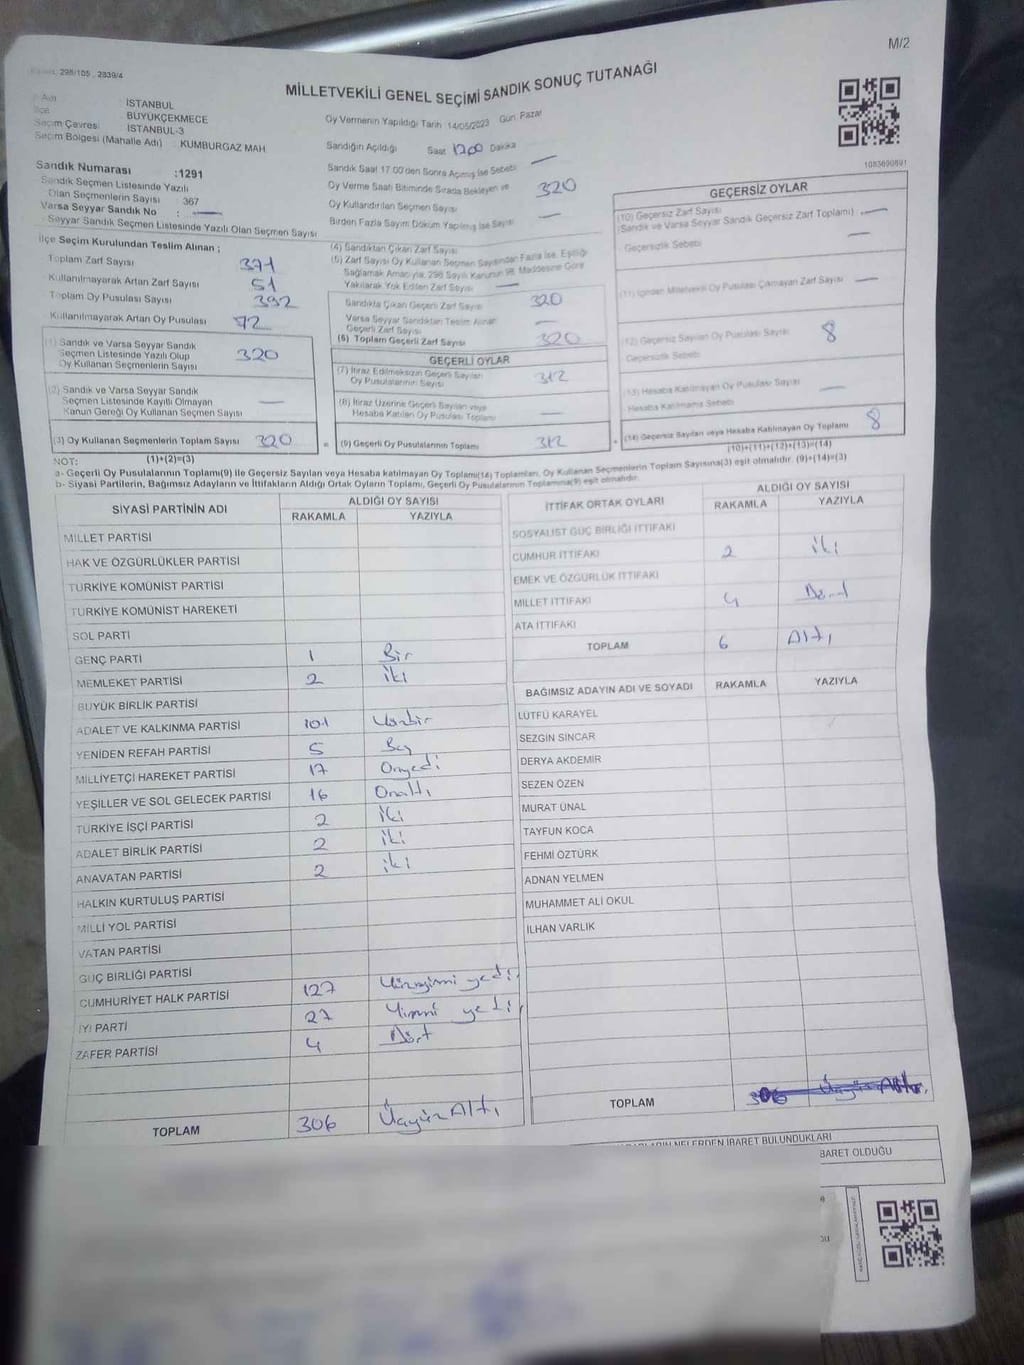 M/2
298/105 , 2839/4
MİLLETVEKİLİ GENEL SEÇİMİ SANDIK SONUÇ TUTANAĞI
İl Adı : İSTANBUL
İlçe : BÜYÜKÇEKMECE
Seçim Çevresi : İSTANBUL-3
Seçim Bölgesi (Mahalle Adı) : KUMBURGAZ MAH.
Oy Vermenin Yapıldığı Tarih 14/05/2023 Gün Pazar
Sandığın Açıldığı Saat 1700 Dakika
1083690691
Sandık Numarası :1291
Sandık Seçmen Listesinde Yazılı
Olan Seçmenlerin Sayısı 367
Varsa Seyyar Sandık No : —
Seyyar Sandık Seçmen Listesinde Yazılı Olan Seçmen Sayısı
Sandık Saat 17.00'den Sonra Açılmış İse Sebebi —
Oy Verme Saati Bitiminde Sırada Bekleyen ve
Oy Kullandırılan Seçmen Sayısı 320
Birden Fazla Sayım Döküm Yapılmış İse Sayısı —
İlçe Seçim Kurulundan Teslim Alınan ;
Toplam Zarf Sayısı 371
Kullanılmayarak Artan Zarf Sayısı 51
Toplam Oy Pusulası Sayısı 392
Kullanılmayarak Artan Oy Pusulası 72
(1) Sandık ve Varsa Seyyar Sandık
Seçmen Listesinde Yazılı Olup
Oy Kullanan Seçmenlerin Sayısı 320
(2) Sandık ve Varsa Seyyar Sandık
Seçmen Listesinde Kayıtlı Olmayan
Kanun Gereği Oy Kullanan Seçmen Sayısı —
(3) Oy Kullanan Seçmenlerin Toplam Sayısı 320
(1)+(2)=(3)
(4) Sandıktan Çıkan Zarf Sayısı
(5) Zarf Sayısı Oy Kullanan Seçmen Sayısından Fazla İse, Eşitliği
Sağlamak Amacıyla, 298 Sayılı Kanunun 98. Maddesine Göre
Yakılarak Yok Edilen Zarf Sayısı —
Sandıkta Çıkan Geçerli Zarf Sayısı 320
Varsa Seyyar Sandıktan Teslim Alınan
Geçerli Zarf Sayısı —
(6) Toplam Geçerli Zarf Sayısı 320
GEÇERLİ OYLAR
(7) İtiraz Edilmeksizin Geçerli Sayılan
Oy Pusulalarının Sayısı 312
(8) İtiraz Üzerine Geçerli Sayılan veya
Hesaba Katılan Oy Pusulası Toplamı —
= (9) Geçerli Oy Pusulalarının Toplamı 312 +
GEÇERSİZ OYLAR
(10) Geçersiz Zarf Sayısı
(Sandık ve Varsa Seyyar Sandık Geçersiz Zarf Toplamı) —
Geçersizlik Sebebi —
(11) İçinden Milletvekili Oy Pusulası Çıkmayan Zarf Sayısı —
(12) Geçersiz Sayılan Oy Pusulası Sayısı 8
Geçersizlik Sebebi
(13) Hesaba Katılmayan Oy Pusulası Sayısı —
Hesaba Katılmama Sebebi
(14) Geçersiz Sayılan veya Hesaba Katılmayan Oy Toplamı 8
(10)+(11)+(12)+(13)=(14)
NOT:
a- Geçerli Oy Pusulalarının Toplamı(9) ile Geçersiz Sayılan veya Hesaba katılmayan Oy Toplamı(14) Toplamları, Oy Kullanan Seçmenlerin Toplam Sayısına(3) eşit olmalıdır. (9)+(14)=(3)
b- Siyasi Partilerin, Bağımsız Adayların ve İttifakların Aldığı Ortak Oyların Toplamı, Geçerli Oy Pusulalarının Toplamına(9) eşit olmalıdır.
SİYASİ PARTİNİN ADI ALDIĞI OY SAYISI
RAKAMLA YAZIYLA
MİLLET PARTİSİ
HAK VE ÖZGÜRLÜKLER PARTİSİ
TÜRKİYE KOMÜNİST PARTİSİ
TÜRKİYE KOMÜNİST HAREKETİ
SOL PARTİ
GENÇ PARTİ 1 Bir
MEMLEKET PARTİSİ 2 iki
BÜYÜK BİRLİK PARTİSİ
ADALET VE KALKINMA PARTİSİ 101 Yüzbir
YENİDEN REFAH PARTİSİ 5 Beş
MİLLİYETÇİ HAREKET PARTİSİ 17 Onyedi
YEŞİLLER VE SOL GELECEK PARTİSİ 16 Onaltı
TÜRKİYE İŞÇİ PARTİSİ 2 iki
ADALET BİRLİK PARTİSİ 2 iki
ANAVATAN PARTİSİ 2 iki
HALKIN KURTULUŞ PARTİSİ
MİLLİ YOL PARTİSİ
VATAN PARTİSİ
GÜÇ BİRLİĞİ PARTİSİ
CUMHURİYET HALK PARTİSİ 127 Yüzyirmi yedi
İYİ PARTİ 27 Yirmi yedi
ZAFER PARTİSİ 4 Dört
TOPLAM 306 ÜçyüzAltı
İTTİFAK ORTAK OYLARI ALDIĞI OY SAYISI
RAKAMLA YAZIYLA
SOSYALİST GÜÇ BİRLİĞİ İTTİFAKI
CUMHUR İTTİFAKI 2 iki
EMEK VE ÖZGÜRLÜK İTTİFAKI
MİLLET İTTİFAKI 4 Dört
ATA İTTİFAKI
TOPLAM 6 Altı
BAĞIMSIZ ADAYIN ADI VE SOYADI RAKAMLA YAZIYLA
LÜTFÜ KARAYEL
SEZGİN SİNCAR
DERYA AKDEMİR
SEZEN ÖZEN
MURAT ÜNAL
TAYFUN KOCA
FEHMİ ÖZTÜRK
ADNAN YELMEN
MUHAMMET ALİ OKUL
İLHAN VARLIK
TOPLAM 306 ÜçyüzAltı
NELERDEN İBARET BULUNDUKLARI
BARET OLDUĞU